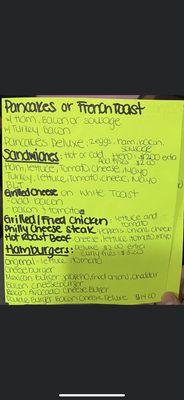 Pancakes or French Toast
w/ Ham, Bacon or sausage
w/ Turkey Bacon
Pancakes Deluxe: 2 eggs, ham, bacon, sausage
Sandwiches: Hot or cold Hero $2.00 extra
Add fries $2.00
Ham, lettuce, Tomato, cheese, Mayo
Turkey, lettuce, Tomato, cheese, Mayo
BLT
Grilled Cheese on white Toast
add bacon
bacon & tomato
Grilled/Fried Chicken lettuce and tomato
Philly Cheese Steak Peppers, onions, cheese
Hot Roast Beef cheese, lettuce, tomato, mayo
Hamburgers: Deluxe $2.00 extra
curly fries $3.00
original lettuce tomato
cheeseburger
Mexican burger jalapeño, fried onions, cheddar
Bacon cheeseburger
Bacon Avocado Cheeseburger
Burger Bacon Cheese Deluxe $14.00